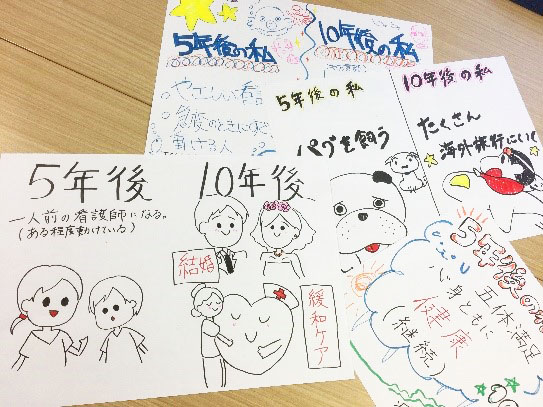 5年後の私
10年後の私
やさしい看
急変のときに
動ける人
5年後の私
パグを飼う
10年後の私
たくさん
海外旅行にいく
5年後
一人前の看護師になる。
(ある程度動けている)
10年後
結婚
緩和ケア
5年後の
五体満足
心身ともに
健康
(継続)